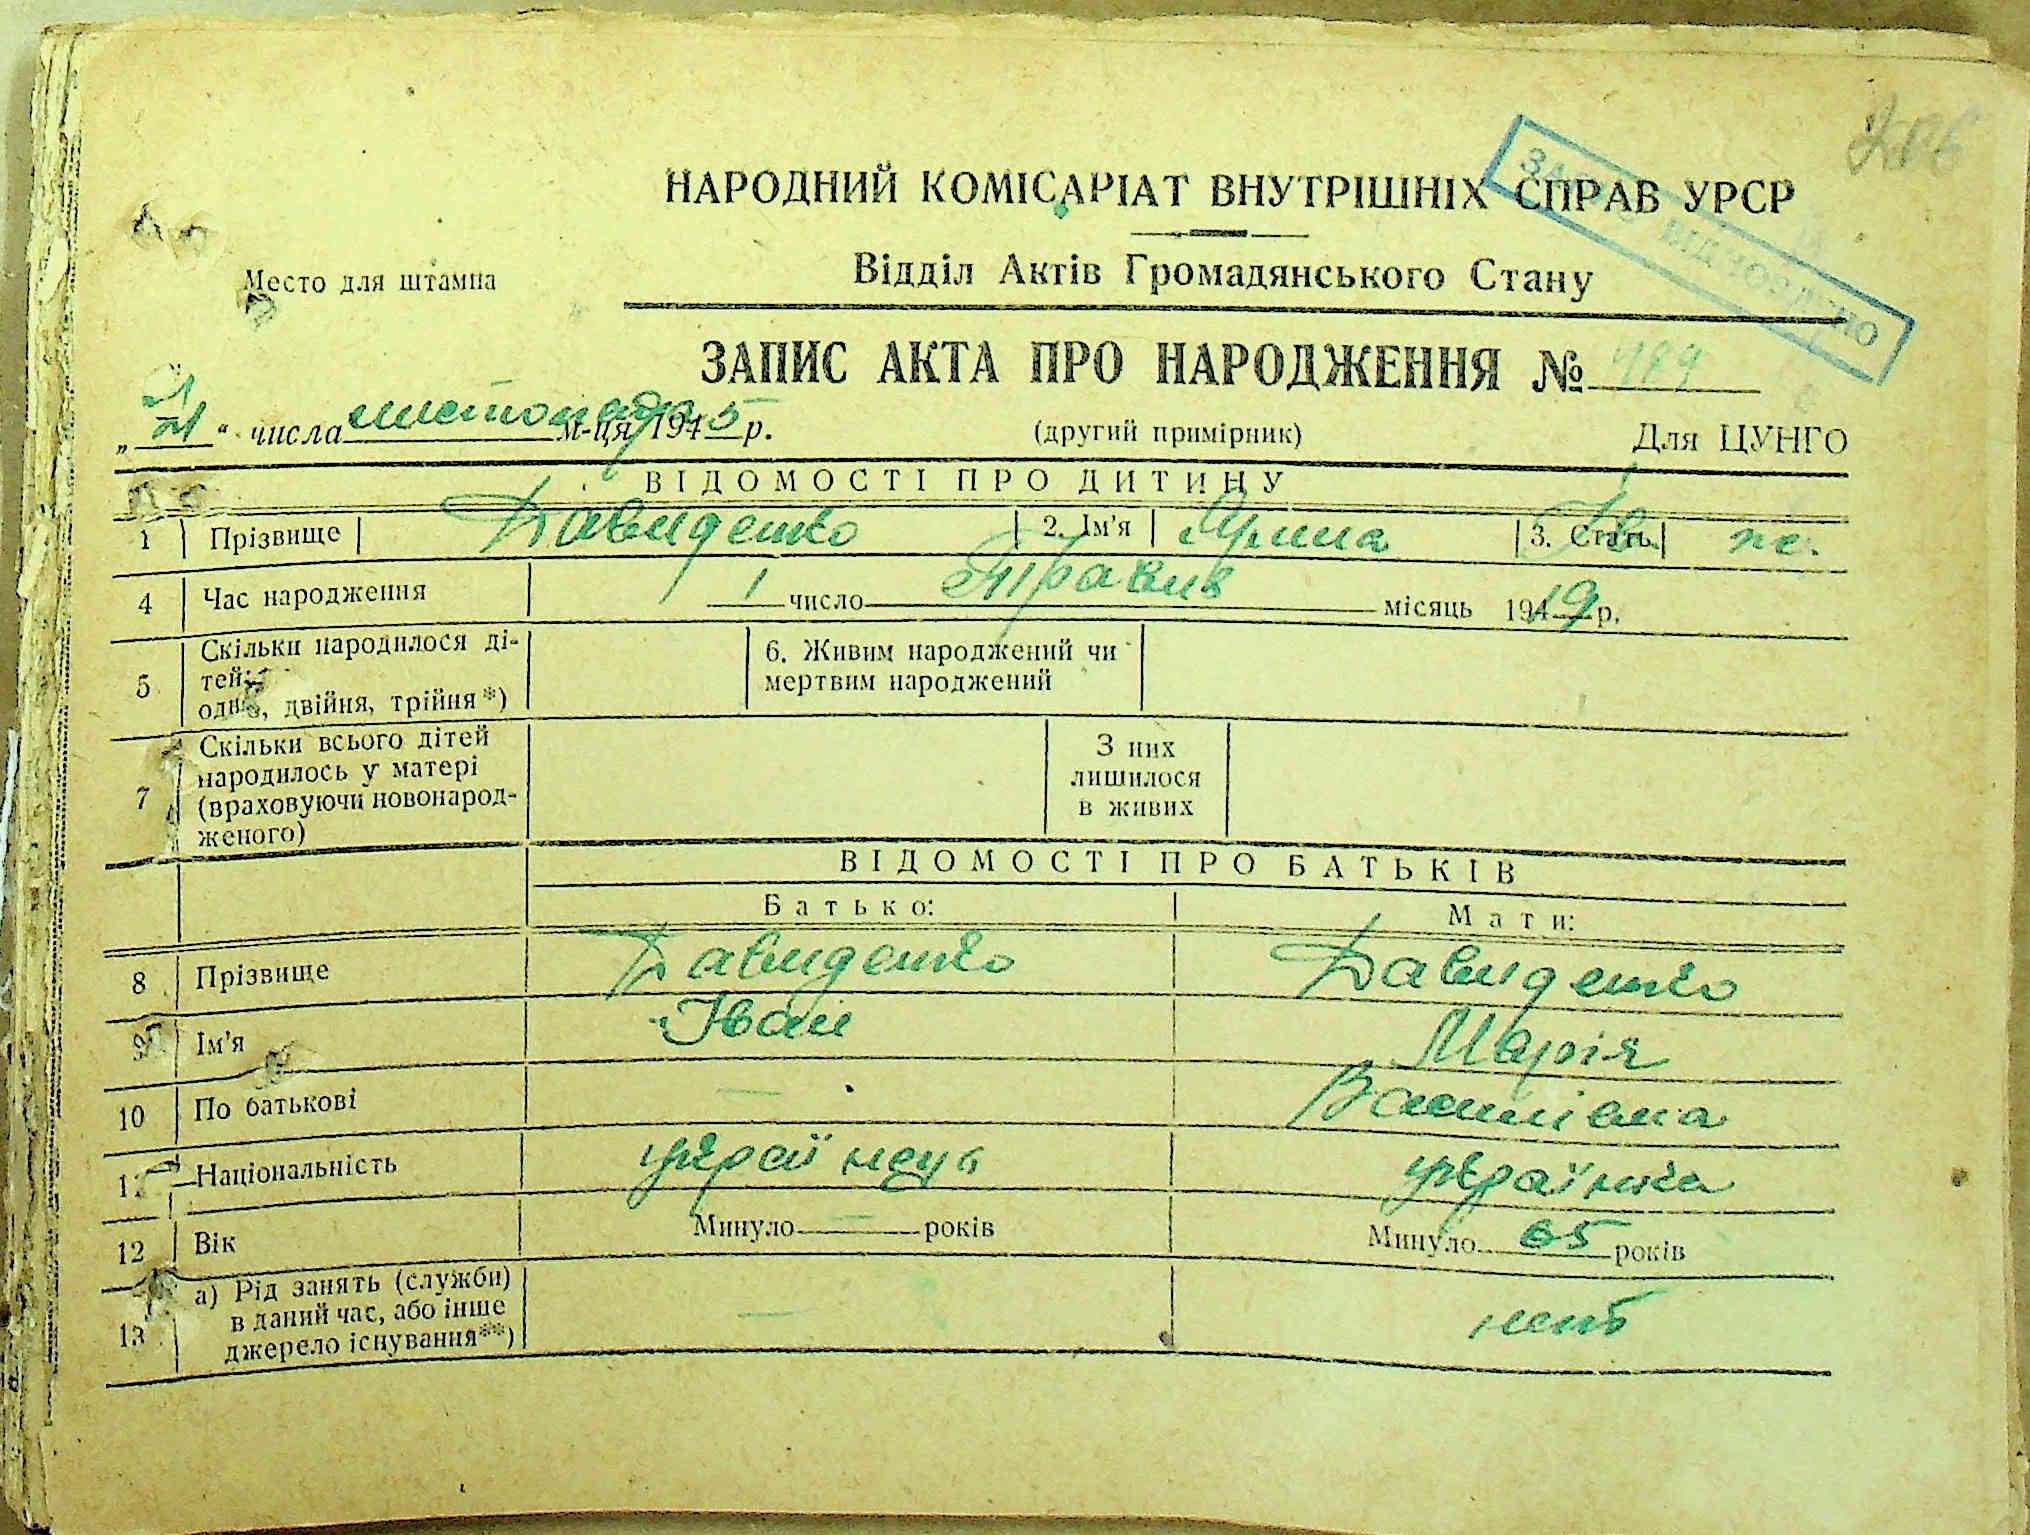 НАРОДНИЙ КОМІСАРІАТ ВНУТРІШНІХ СПРАВ УРСР
Место для штампа
Відділ Актів Громадянського Стану
ЗАПИС АКТА ПРО НАРОДЖЕННЯ № 489
„21“ числа листопада м-ця 1945 р. (другий примірник) Для ЦУНГО
ВІДОМОСТІ ПРО ДИТИНУ
1 Прізвище Давиденко 2. Ім'я 3. Стать
4 Час народження 1 число Травня місяць 1919 р.
5 Скільки народилося ді-
тей:
одне, двійня, трійня*)
6. Живим народжений чи
мертвим народжений
7 Скільки всього дітей
народилось у матері
(враховуючи новонарод-
женого)
З них
лишилося
в живих
ВІДОМОСТІ ПРО БАТЬКІВ
Батько: Мати:
8 Прізвище Давиденко Давиденко
9 Ім'я Іван Марія
10 По батькові — Василівна
11 Національність українець українка
12 Вік Минуло — років Минуло 65 років
13 а) Рід занять (служби)
в даний час, або інше
джерело існування**)
—